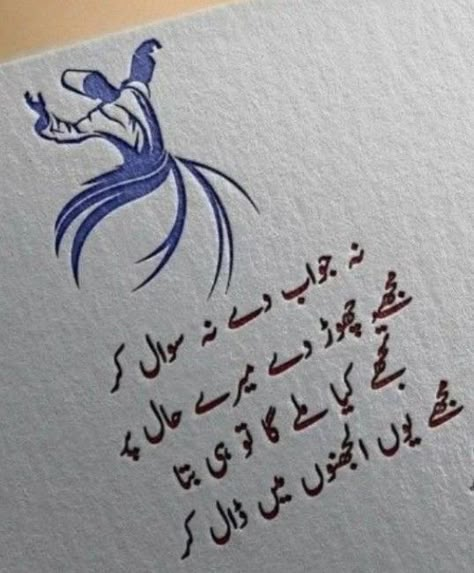 نہ جواب دے نہ سوال کر
مجھے چھوڑ دے میرے حال پر
تجھے کیا ملے گا تو ہی بتا
مجھے یوں الجھنوں میں ڈال کر